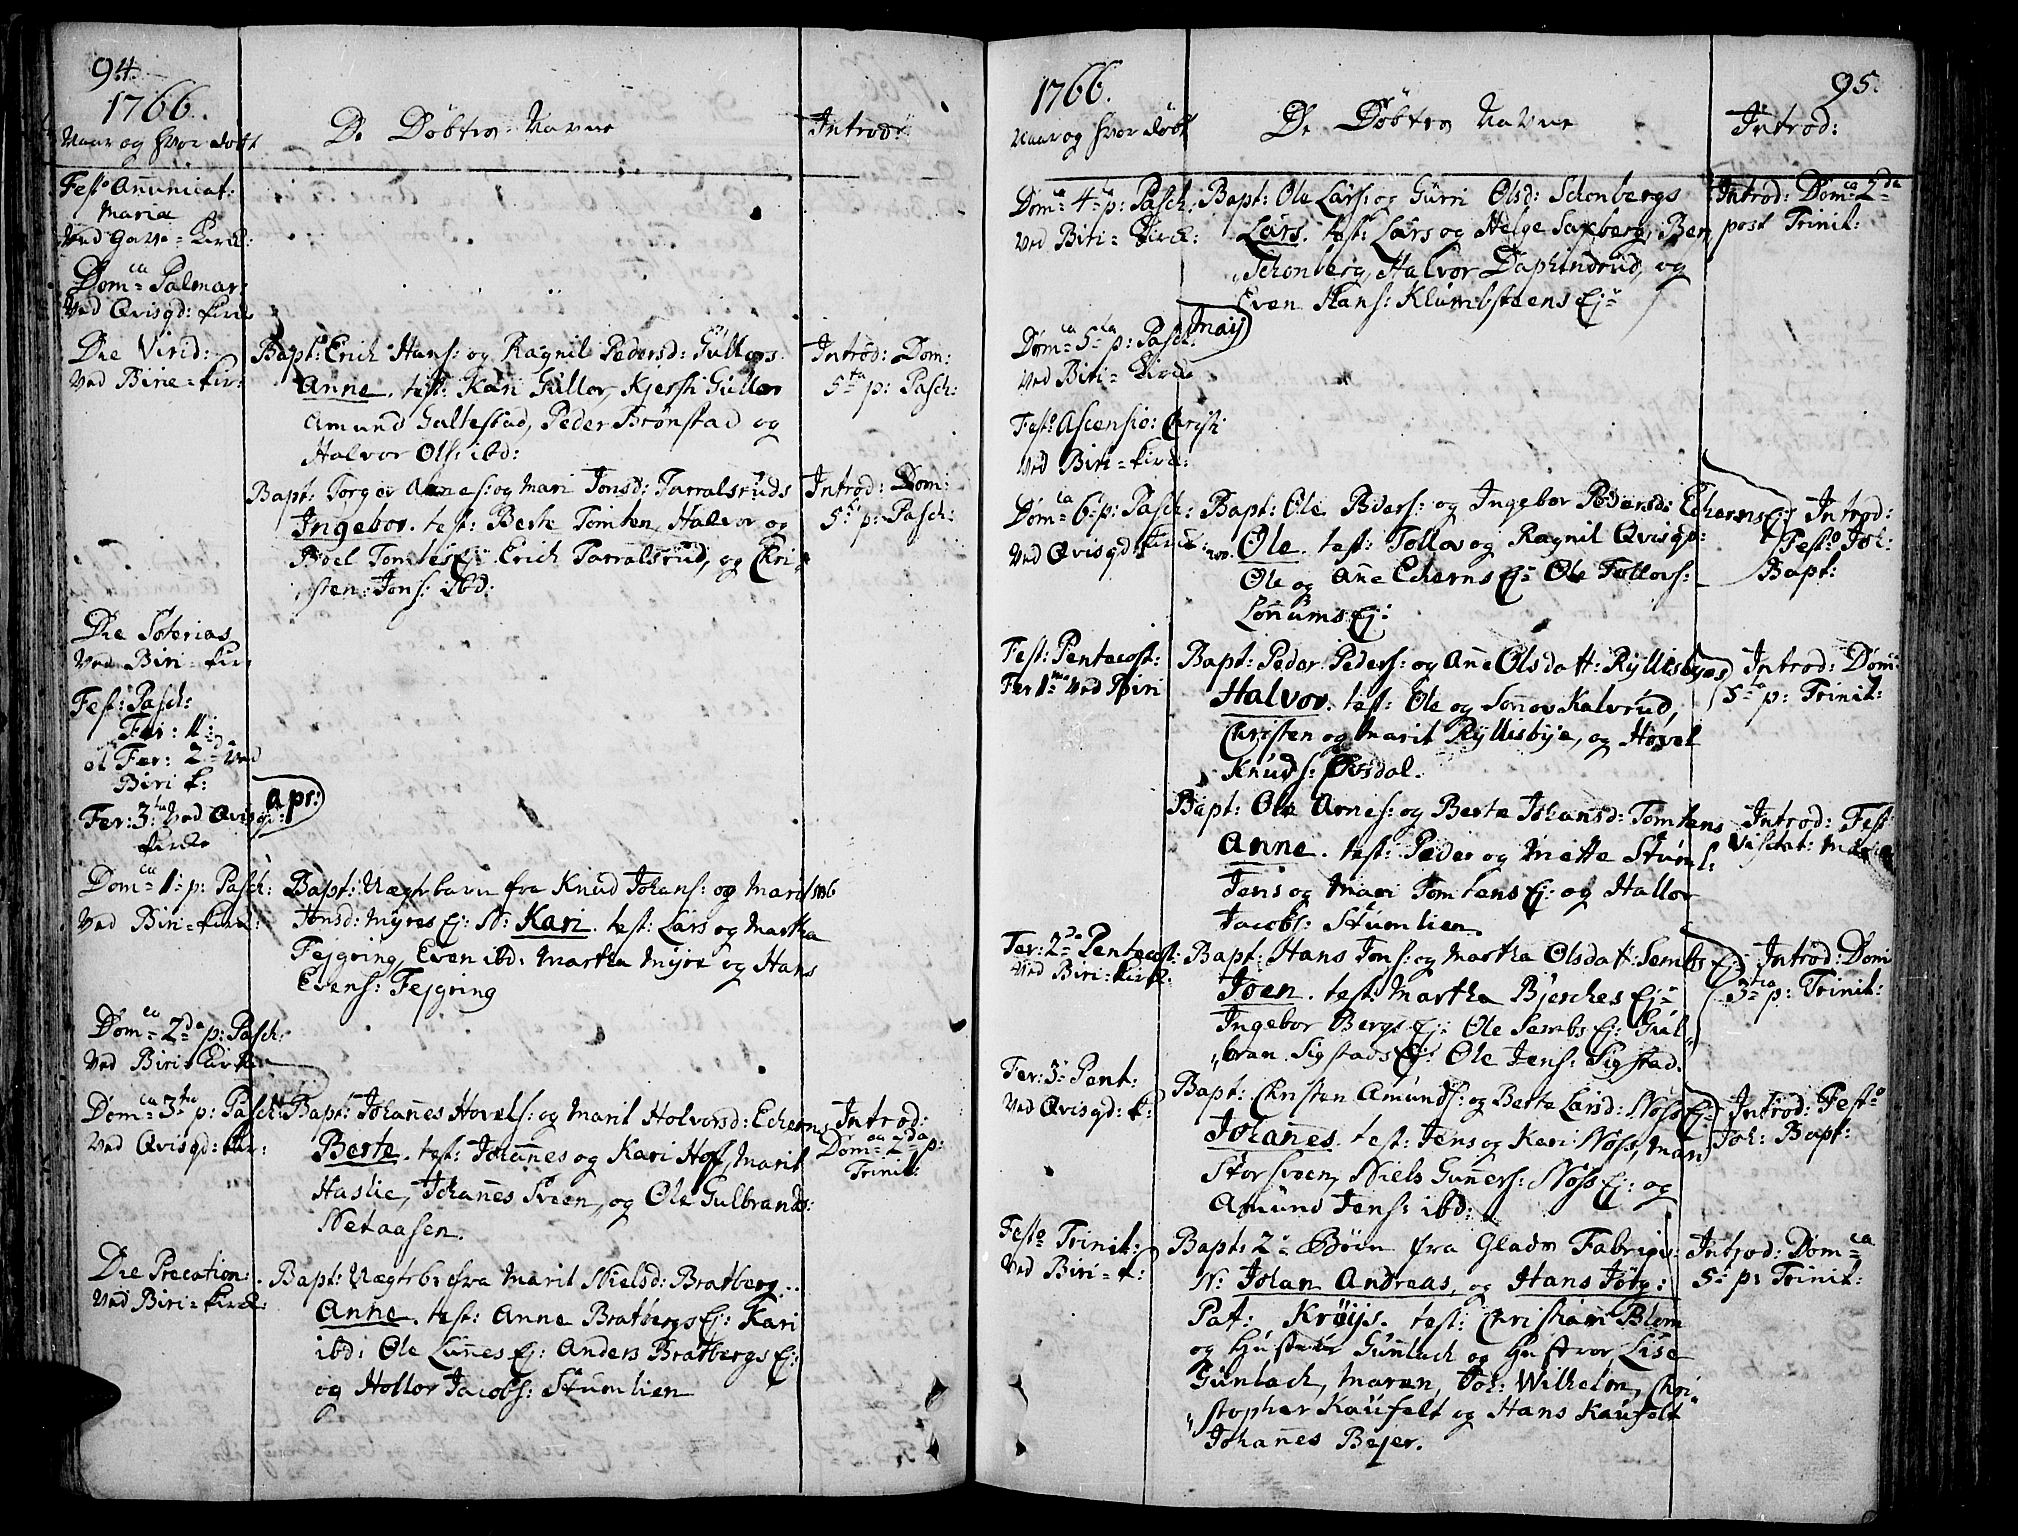 94.
1766.
Naar og hvor døbt
De Døbtes Navne
Introd:
Festo Anunicat:
Mariæ
Ved Kirk:
Domca Palmar:
Ved Qvisgd: Kirke
Die Virid:
Ved Birie-Kir:
Bapt: Erich Hans: og Ragnil Pedersd: Gullors.
Anne. test: Kari Gullor, Kjersti Gullor
Amund Galtestad, Peder Brønstad og
Halvor Ols: ibd:
Introd: Dom:
5ta p: Pasch:
Bapt: Torger Arnes: og Mari Jonsd: Tarralsruds
Ingebor. test: Berte Tomten, Halvor og
Boel Tomtes Ej: Erich Tarralsrud, og Chri-
sten: Jons: ibd:
Introd: Dom:
5ta p: Pasch:
Die Soterias
Ved Biri-Kir:
Fest: Pasch:
Fer: 1:
et Fer: 2da Ved
Biri K:
Fer: 3tia Ved Qvisgd:
Kirke
Apr:
Domca 1: p: Pasch:
Ved Biri-Kirk:
Bapt: Uægte barn fra Knud Johans: og Marit
Jonsd: Myres Ej: N: Kari. test: Lars og Martha
Fejgring, Even ibd: Martha Myre og Hans
Evens: Fejgring
Domca 2da p: Pasch:
Ved Biri Kirke
Domca 3tia p: Pasch:
Ved Qvisgd: Kir:
Bapt: Johannes Hovels: og Marit Holvorsd: Echerns
Berte. test: Johannes og Kari Hof, Marit
Haslie, Johannes Sveen, og Ole Gulbrands:
Netaasen.
Introd:
Domca 2da p:
Trinit:
Die Precation:
Ved Biri-Kirk:
Bapt: Uægte b: fra Marit Nielsd: Bratberg
Anne. test: Anne Bratbergs Ej: Kari
ibd: Ole Lunes Ej: Anders Bratbergs Ej:
og Hollor Jacobs: Stumlien
95.
1766.
Naar og hvor døbt
De Døbtes Navne
Introd:
Domca 4ta p: Pasch:
Ved Biri-Kirk:
Bapt: Ole Lars: og Gurri Olsd: Schonbergs
Lars. test: Lars og Helge Saxberg, Ber,
Schonberg, Halvor Daphindrud, og
Even Hans: Klumbsteens Ej:
Introd: Domca 2da
post Trinit:
Domca 5ta p: Pasch:
Ved Biri-Kirke
Maij
Festo Ascensio: Christi
Ved Biri-Kirk:
Domca 6: p: Pasch:
Ved Qvisgd: Kirke
Bapt: Ole Peders: og Ingebor Pedersd: Echerns Ej:
Ole. test: Tollov og Ragnil Qvisgd:
Ole og Ane Echerns Ej: Ole Tollovs:
Lonnums Ej:
Introd:
Festo Joh:
Bapt:
Fest: Pentecost:
Fer 1ma Ved Biri
Bapt: Peder Peders: og Ane Olsdatt: Ryllisbyes
Halvor. test: Ole og Sønnov Kalvrud,
Christen og Marit Ryllisbye, og Høvel
Knuds: Ovsdal.
Introd: Dom:
5ta p: Trinit:
Bapt: Ole Arnes: og Berte Johansd: Tomtens
Anne. test: Peder og Mette Stuml:
Jens og Mari Tomtens Ej: og Hallor
Jacobs: Stumlien.
Introd: Fest
Visitat: Mariæ
Fer: 2da Pentecost:
Ved Biri-Kirk:
Bapt: Hans Jons: og Martha Olsdatt: Sembs Ej:
Joen. test: Martha Bjerches Ej:
Ingebor Bergs Ej: Ole Sembs Ej: Gul-
bran Sigstads Ej: Ole Jens: Sigstad.
Introd: Dom
3tia p: Trinit:
Fer: 3: Pent:
Ved Qvisgd: K:
Bapt: Christen Amunds: og Berte Larsd: Noss Ej:
Johannes. test: Jens og Kari Noss, Mari
Storsveen, Niels Guners: Noss Ej: og
Amund Jens: ibd:
Introd: Festo
Joh: Bapt:
Festo Trinit:
Ved Biri-K:
Bapt: 2 Børn fra Glads Fabriqv:
N: Johan Andreas, og Hans Jørg:
Pat: Krøijs. test: Christian Blom
og Hustru Gunlach og Hustror Lise
Gunlach, Maren, Joh: Wilhelm, Chri
stopher Kaufelt og Hans Kaufelt
Johannes Bejer.
Introd: Domca
5: p: Trinit: